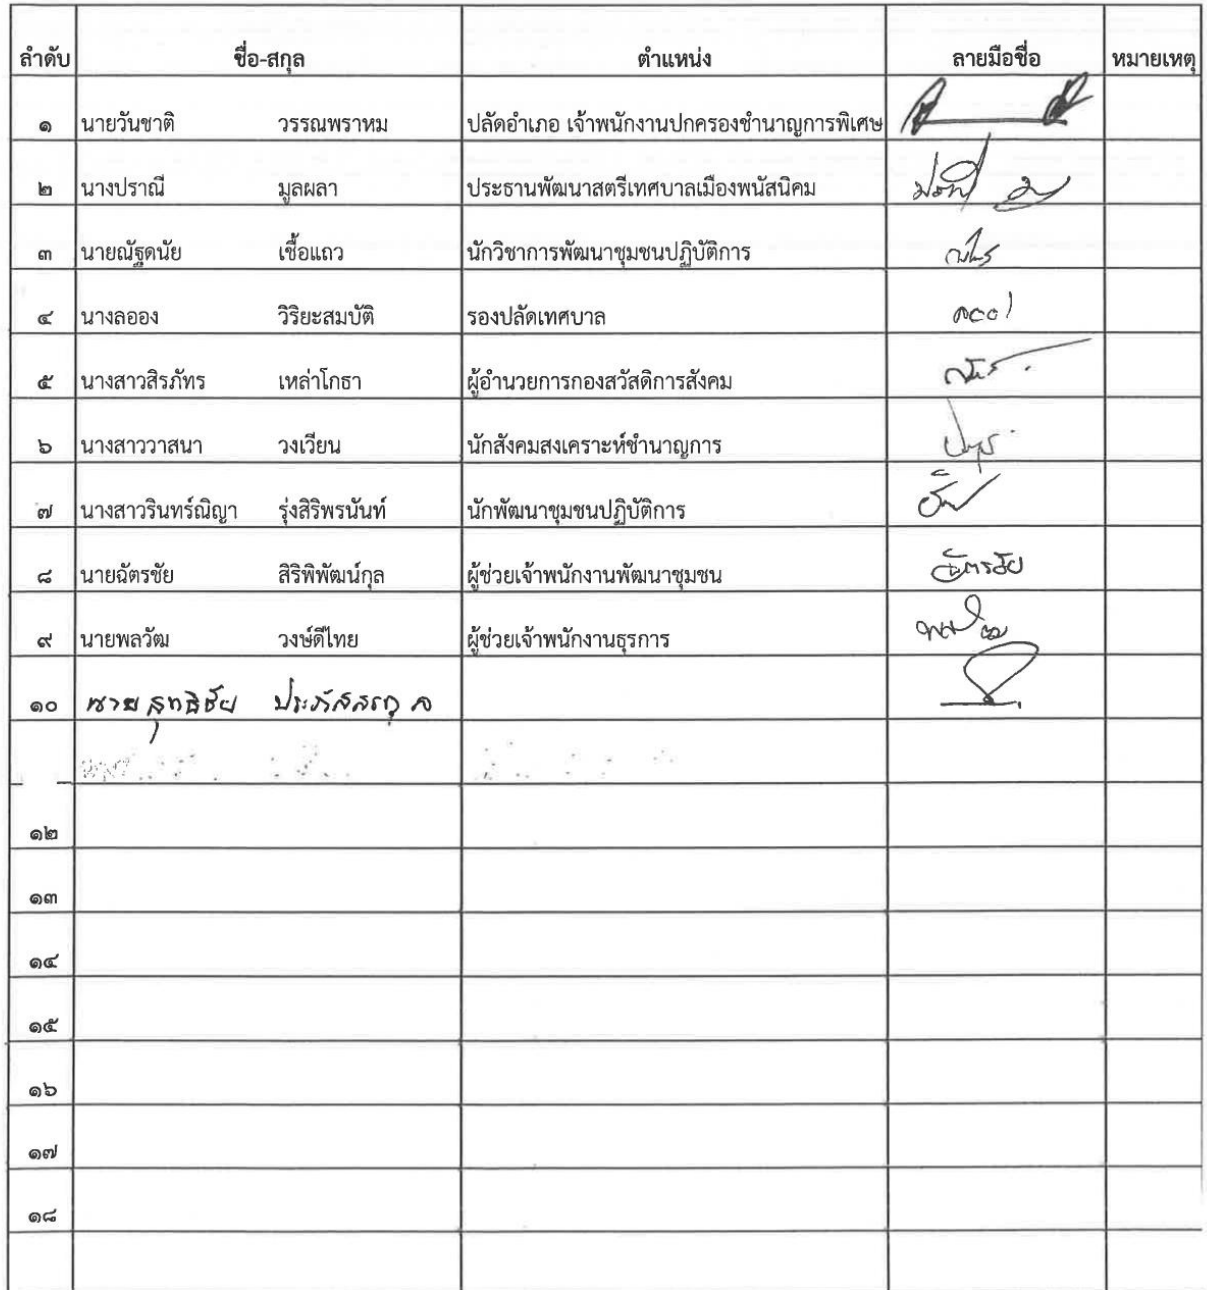 ลำดับ ชื่อ-สกุล ตำแหน่ง ลายมือชื่อ หมายเหตุ
๑ นายวันชาติ วรรณพราหม ปลัดอำเภอ เจ้าพนักงานปกครองชำนาญการพิเศษ
๒ นางปราณี มูลผลา ประธานพัฒนาสตรีเทศบาลเมืองพนัสนิคม
๓ นายณัฐดนัย เชื้อแถว นักวิชาการพัฒนาชุมชนปฏิบัติการ
๔ นางลออง วิริยะสมบัติ รองปลัดเทศบาล
๕ นางสาวสิรภัทร เหล่าโกธา ผู้อำนวยการกองสวัสดิการสังคม
๖ นางสาววาสนา วงเวียน นักสังคมสงเคราะห์ชำนาญการ
๗ นางสาวรินทร์ณิญา รุ่งสิริพรนันท์ นักพัฒนาชุมชนปฏิบัติการ
๘ นายฉัตรชัย สิริพิพัฒน์กุล ผู้ช่วยเจ้าพนักงานพัฒนาชุมชน ฉัตรชัย
๙ นายพลวัฒ วงษ์ดีไทย ผู้ช่วยเจ้าพนักงานธุรการ
๑๐ นายสุทธิชัย
๑๒
๑๓
๑๔
๑๕
๑๖
๑๗
๑๘